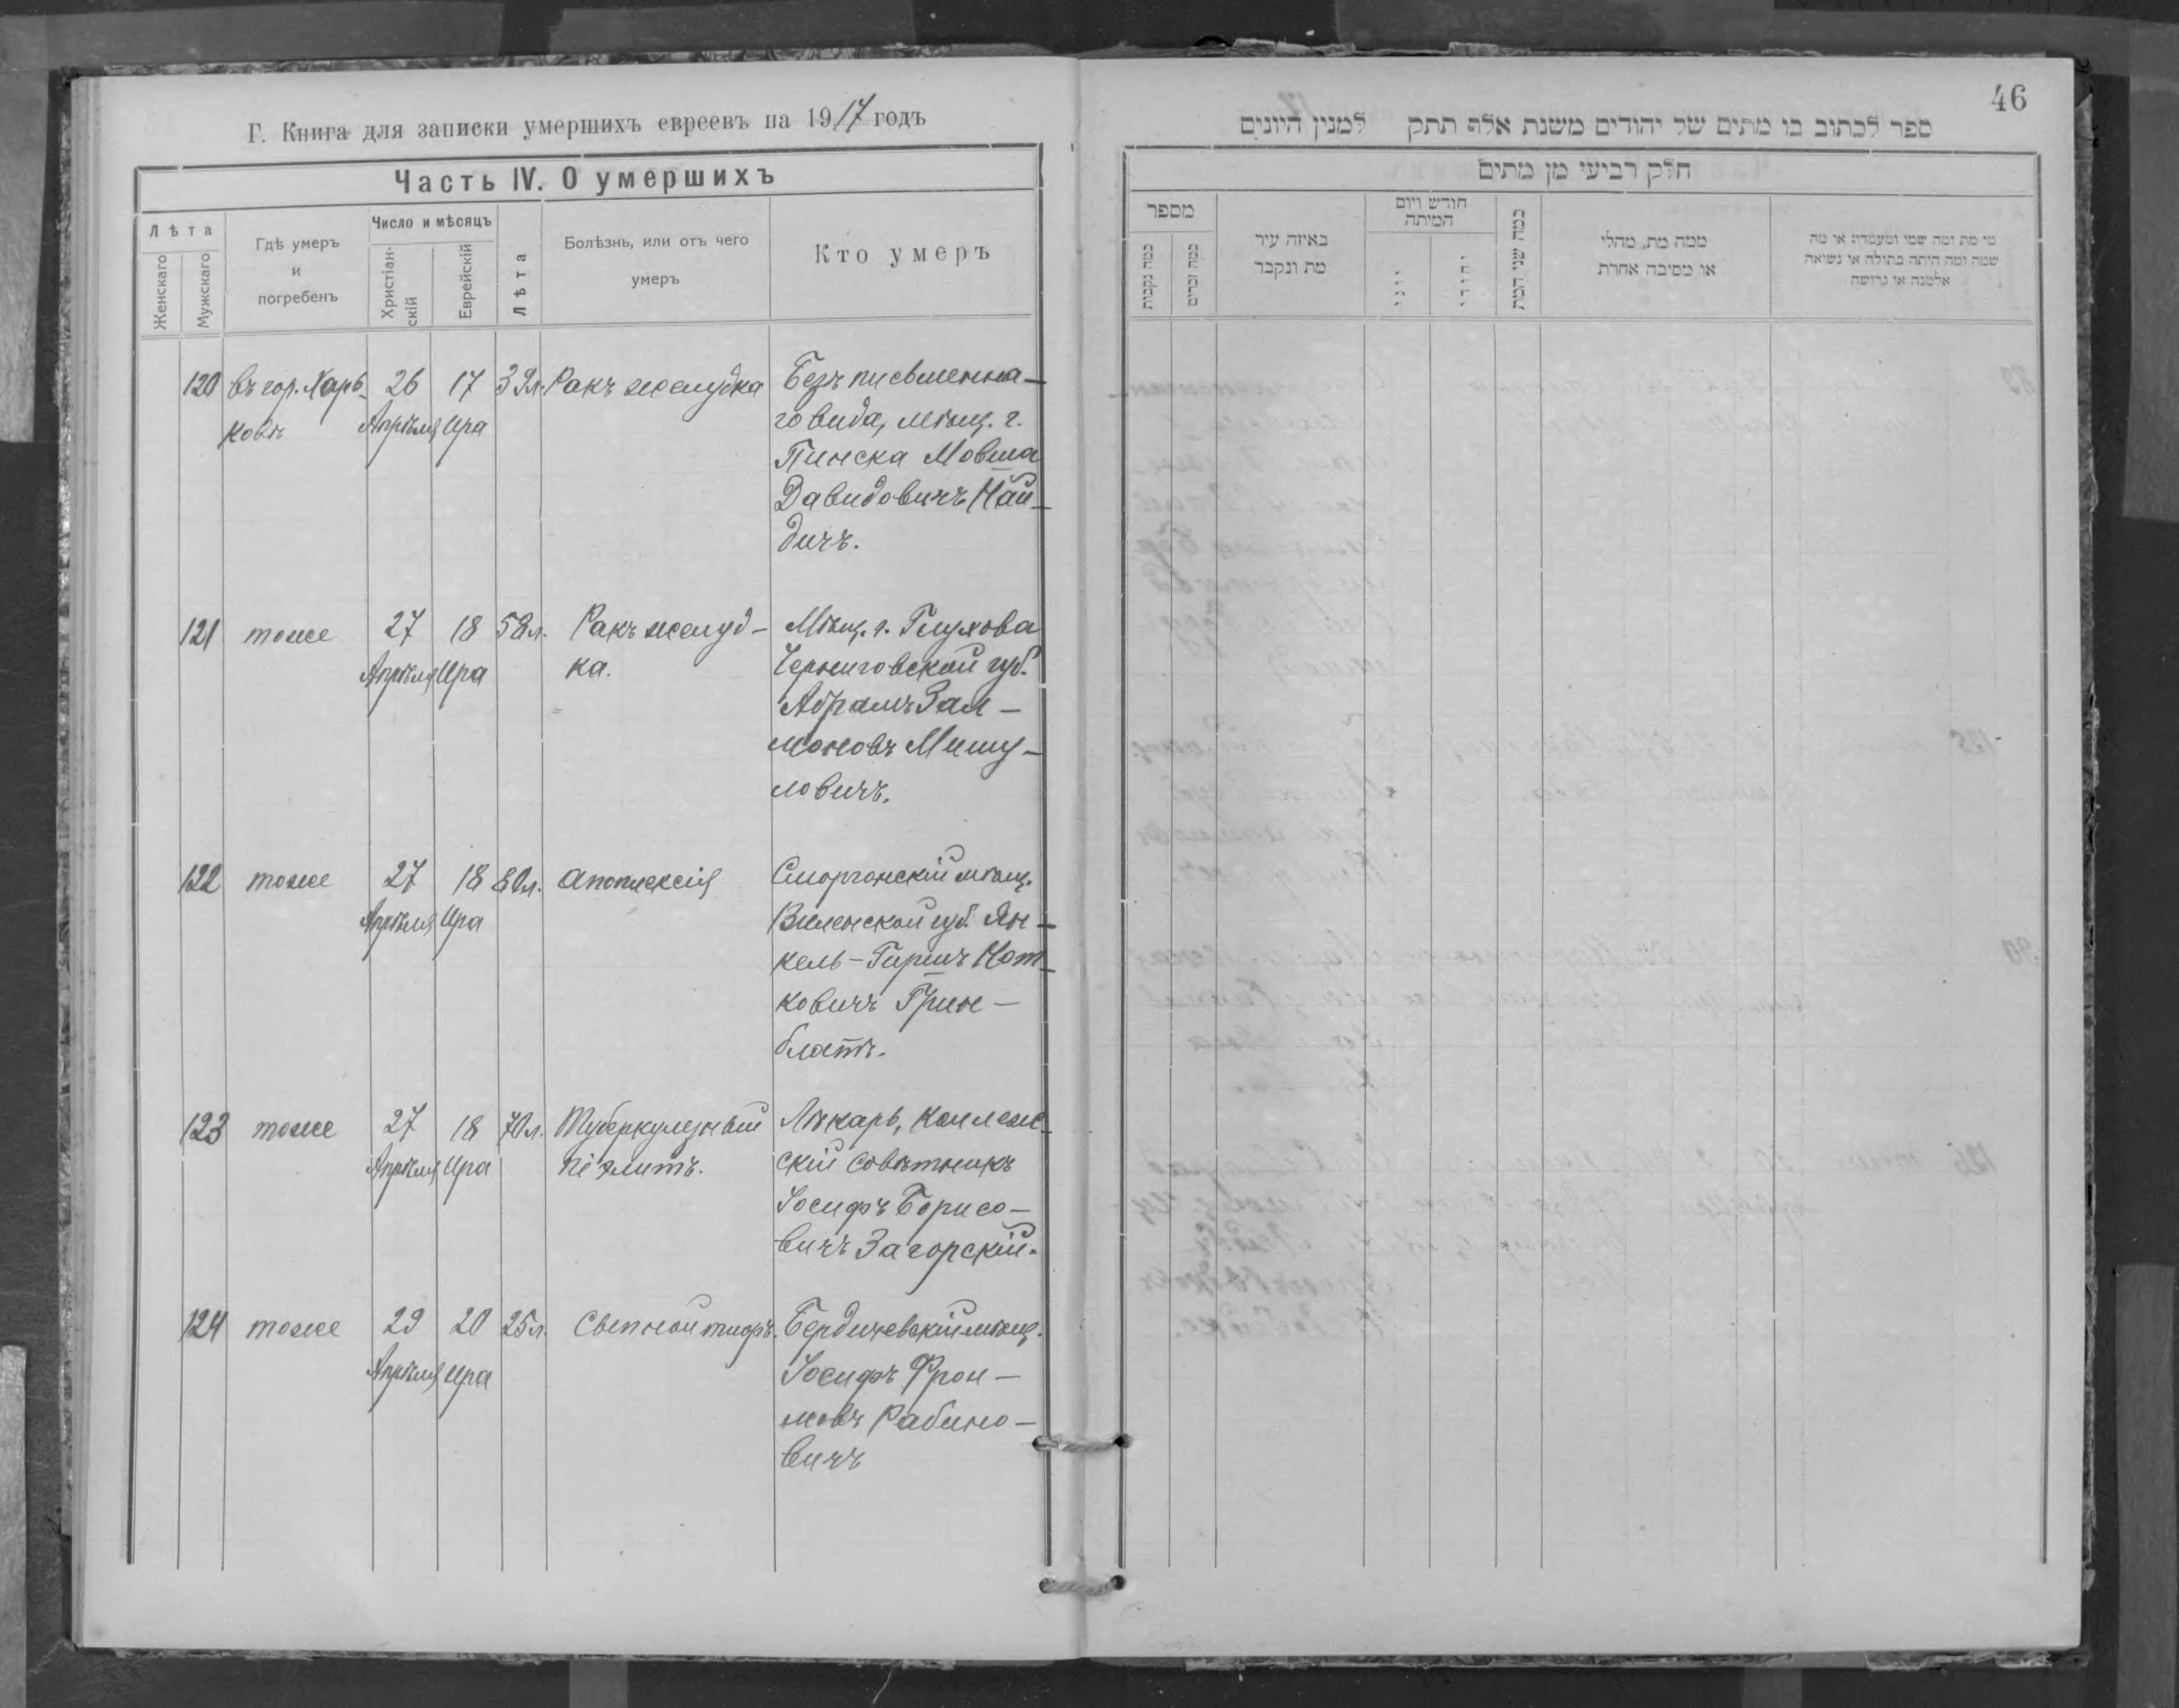 Г. Книга для записки умершихъ евреевъ на 1917 годъ
Часть IV. О умершихъ
Лѣта
Женскаго
Мужскаго
Гдѣ умеръ
и
погребенъ
Число и мѣсяцъ
Христіан-
скій
Еврейскій
Лѣта
Болѣзнь, или отъ чего
умеръ
Кто умеръ
120 въ гор. Харь- 26 17 39л. Ракъ желудка Безъ письменна-
ковѣ Апрѣля Ира го вида, мѣщ. г.
Пинска Мовша
Давидовичъ Най-
дичъ.
121 тоже 27 18 58л. Ракъ желуд- Мѣщ. г. Глухова
Апрѣля Ира ка. Черниговской губ.
Абрамъ Зал-
моновъ Мишу-
ловичъ.
122 тоже 27 18 80л. апоплексія Сморгонскій мѣщ.
Апрѣля Ира Виленской губ. Ян-
кель-Гиршъ Нот-
ковичъ Грин-
блатъ.
123 тоже 27 18 70л. Туберкулезный Лѣкарь, Коллеж-
Апрѣля Ира скій совѣтникъ
Іосифъ Борисо-
вичъ Загорскій.
124 тоже 29 20 25л. Сыпной тифъ. Бердичевскій мѣщ.
Апрѣля Ира Іосифъ Фрои-
мовъ Рабино-
вичъ
46
ספר לכתוב בו מתים של יהודים משנת אלף תתק למנין היונים
חלק רביעי מן מתים
מספר
כמה נקבות
כמה זכרים
באיזה עיר
מת ונקבר
חודש ויום
המיתה
יווני
יהודי
כמה שני המת
ממה מת, מחלי
או מסיבה אחרת
מי מת ומה שמו ומעמדו או מה
שמה ומה היתה בתולה או נשואה
אלמנה או גרושה